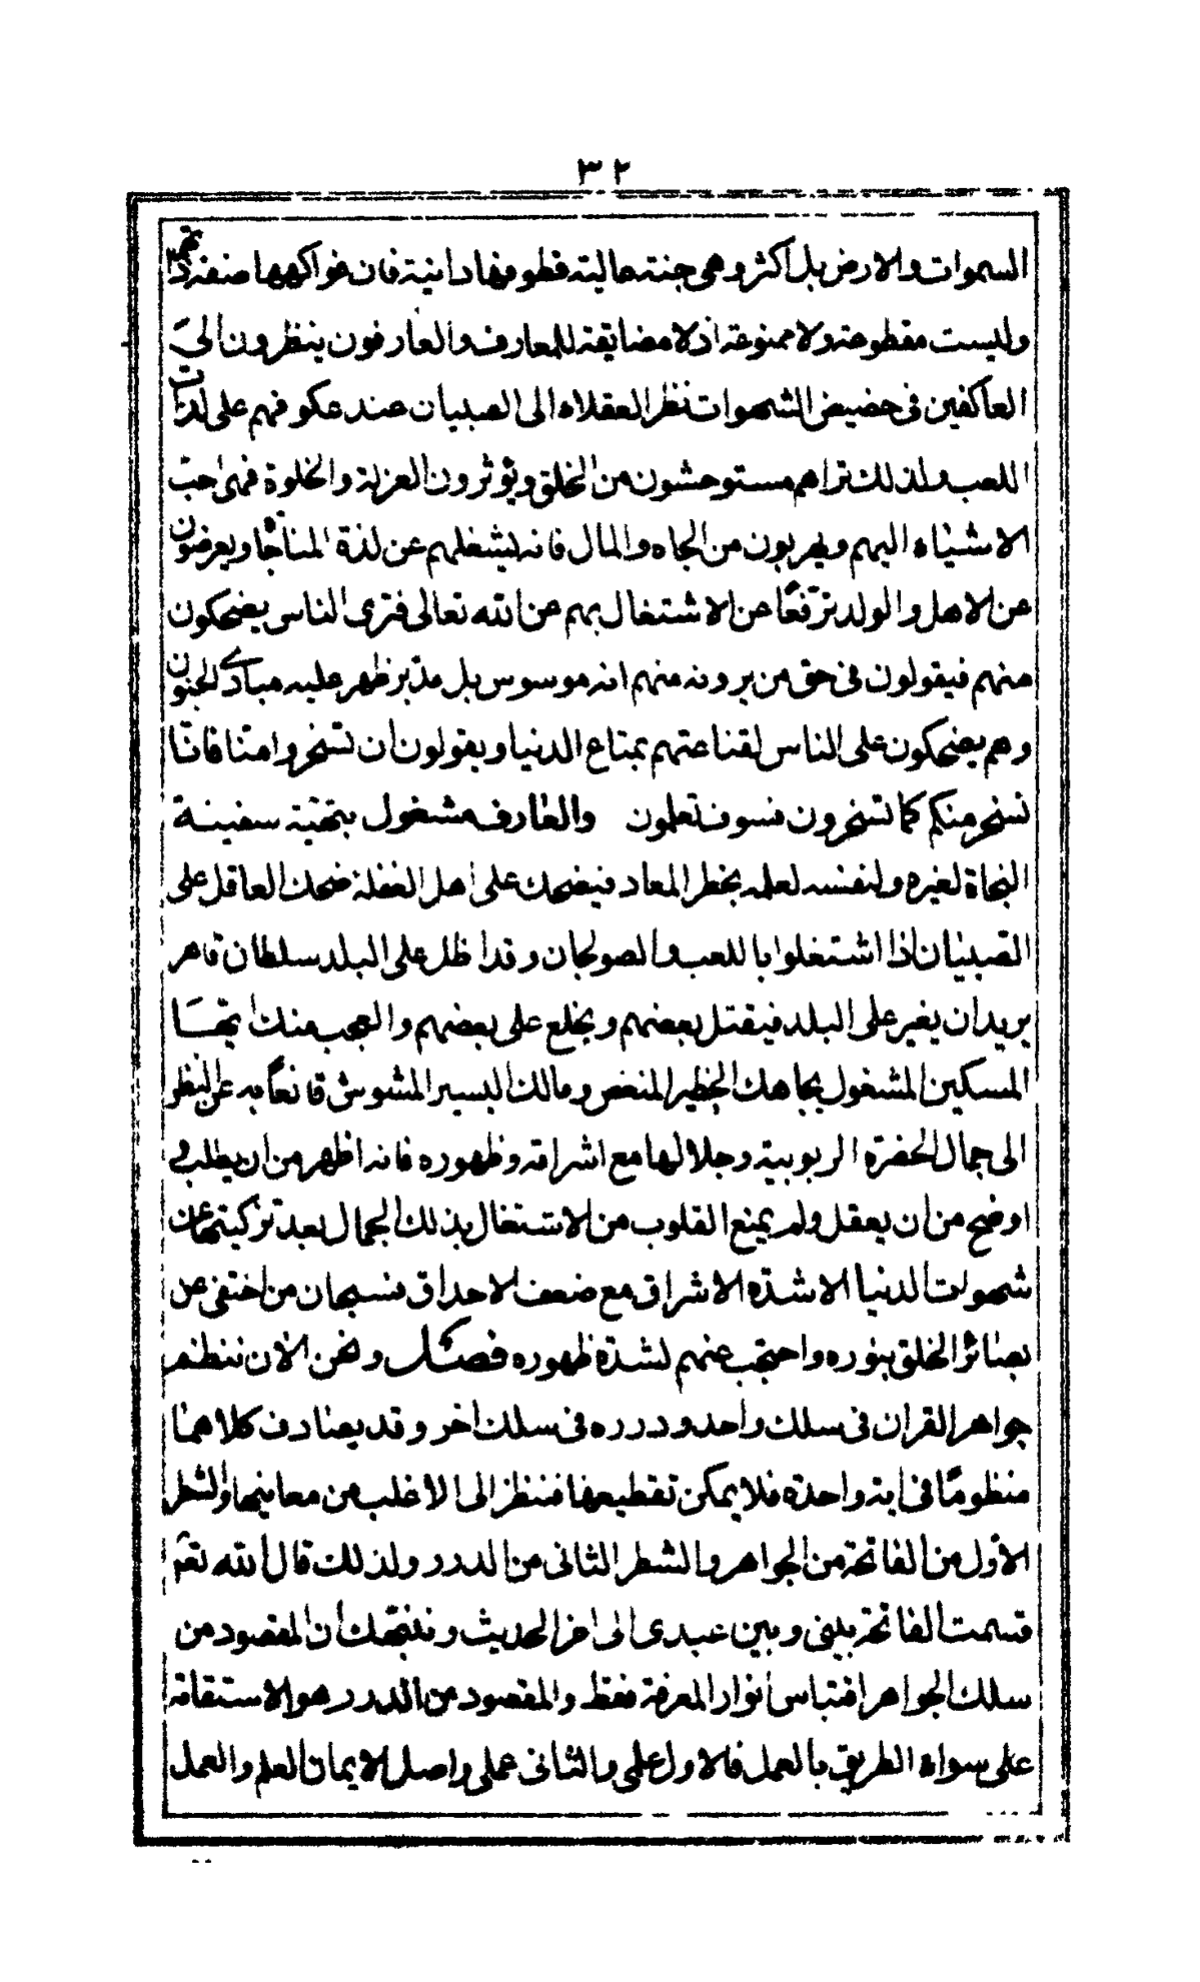 ٣٢
السموات والارض بل اكثر وهى جنة عالية قطوفها دانية فان فواكهها صفة ذاتهم
وليست مقطوعة ولا ممنوعة اذ لا مضايقة للمعارف والعارفون ينظرون الى
العاكفين فى حضيض الشهوات نظر العقلاء الى الصبيان عند عكوفهم على لذات
اللعب ولذلك تراهم مستوحشون من الخلق ويؤثرون العزلة والخلوة فهى احبّ
الاشياء اليهم ويهربون من الجاه والمال فانه يشغلهم عن لذة المناجاة ويعرضون
عن الاهل والولد ترّفعًا عن الاشتغال بهم عن الله تعالى فترى الناس يضحكون
منهم فيقولون فى حق من يرونه منهم انه موسوس بل مدبّر ظهر عليه مبادى الجنون
وهم يضحكون على الناس لقناعتهم بمتاع الدنيا ويقولون ان تسخروا منّا فانّا
نسخر منكم كما تسخرون فسوف تعلمون والعارف مشغول بتهيّة سفينة
النجاة لغيره ولنفسه لعلمه بخطر المعاد فيضحك على اهل الغفلة ضحك العاقل على
الصبيان اذا اشتغلوا باللعب والصولجان وقد اظل على البلد سلطان قاهر
يريد ان يغير على البلد فيقتل بعضهم ويخلع على بعضهم والعجب منك ايّها
المسكين المشغول بجاهك الخطير المنغص ومالك اليسير المشوش قانعًا به عن النظر
الى جمال الحضرة الربوبية وجلالها مع اشراقه وظهوره فانه اظهر من ان يطلب و
اوضح من ان يعقل ولم يمنع القلوب من الاشتغال بذلك الجمال بعد تزكيتها عن
شهوات الدنيا الا شدّة الاشراق مع ضعف الاحداق فسبحان من اختفى عن
بصائر الخلق بنوره واحتجب عنهم لشدّة ظهوره فصل ونحن الآن ننظم
جواهر القران فى سلك واحد ودرره فى سلك اخر وقد يصادف كلاهما
منظومًا فى اية واحدة فلا يمكن تقطيعها فننظر الى الاغلب من معانيها والشطر
الأول من الفاتحة من الجواهر والشطر الثانى من الدرر ولذلك قال الله تعم
قسمت الفاتحة بينى وبين عبدى الى اخر الحديث وننبّهك ان المقصود من
سلك الجواهر اقتباس انوار المعرفة فقط والمقصود من الدرر هو الاستقامة
على سواء الطريق بالعمل فالاول علمى والثانى عملى واصل الايمان العلم والعمل